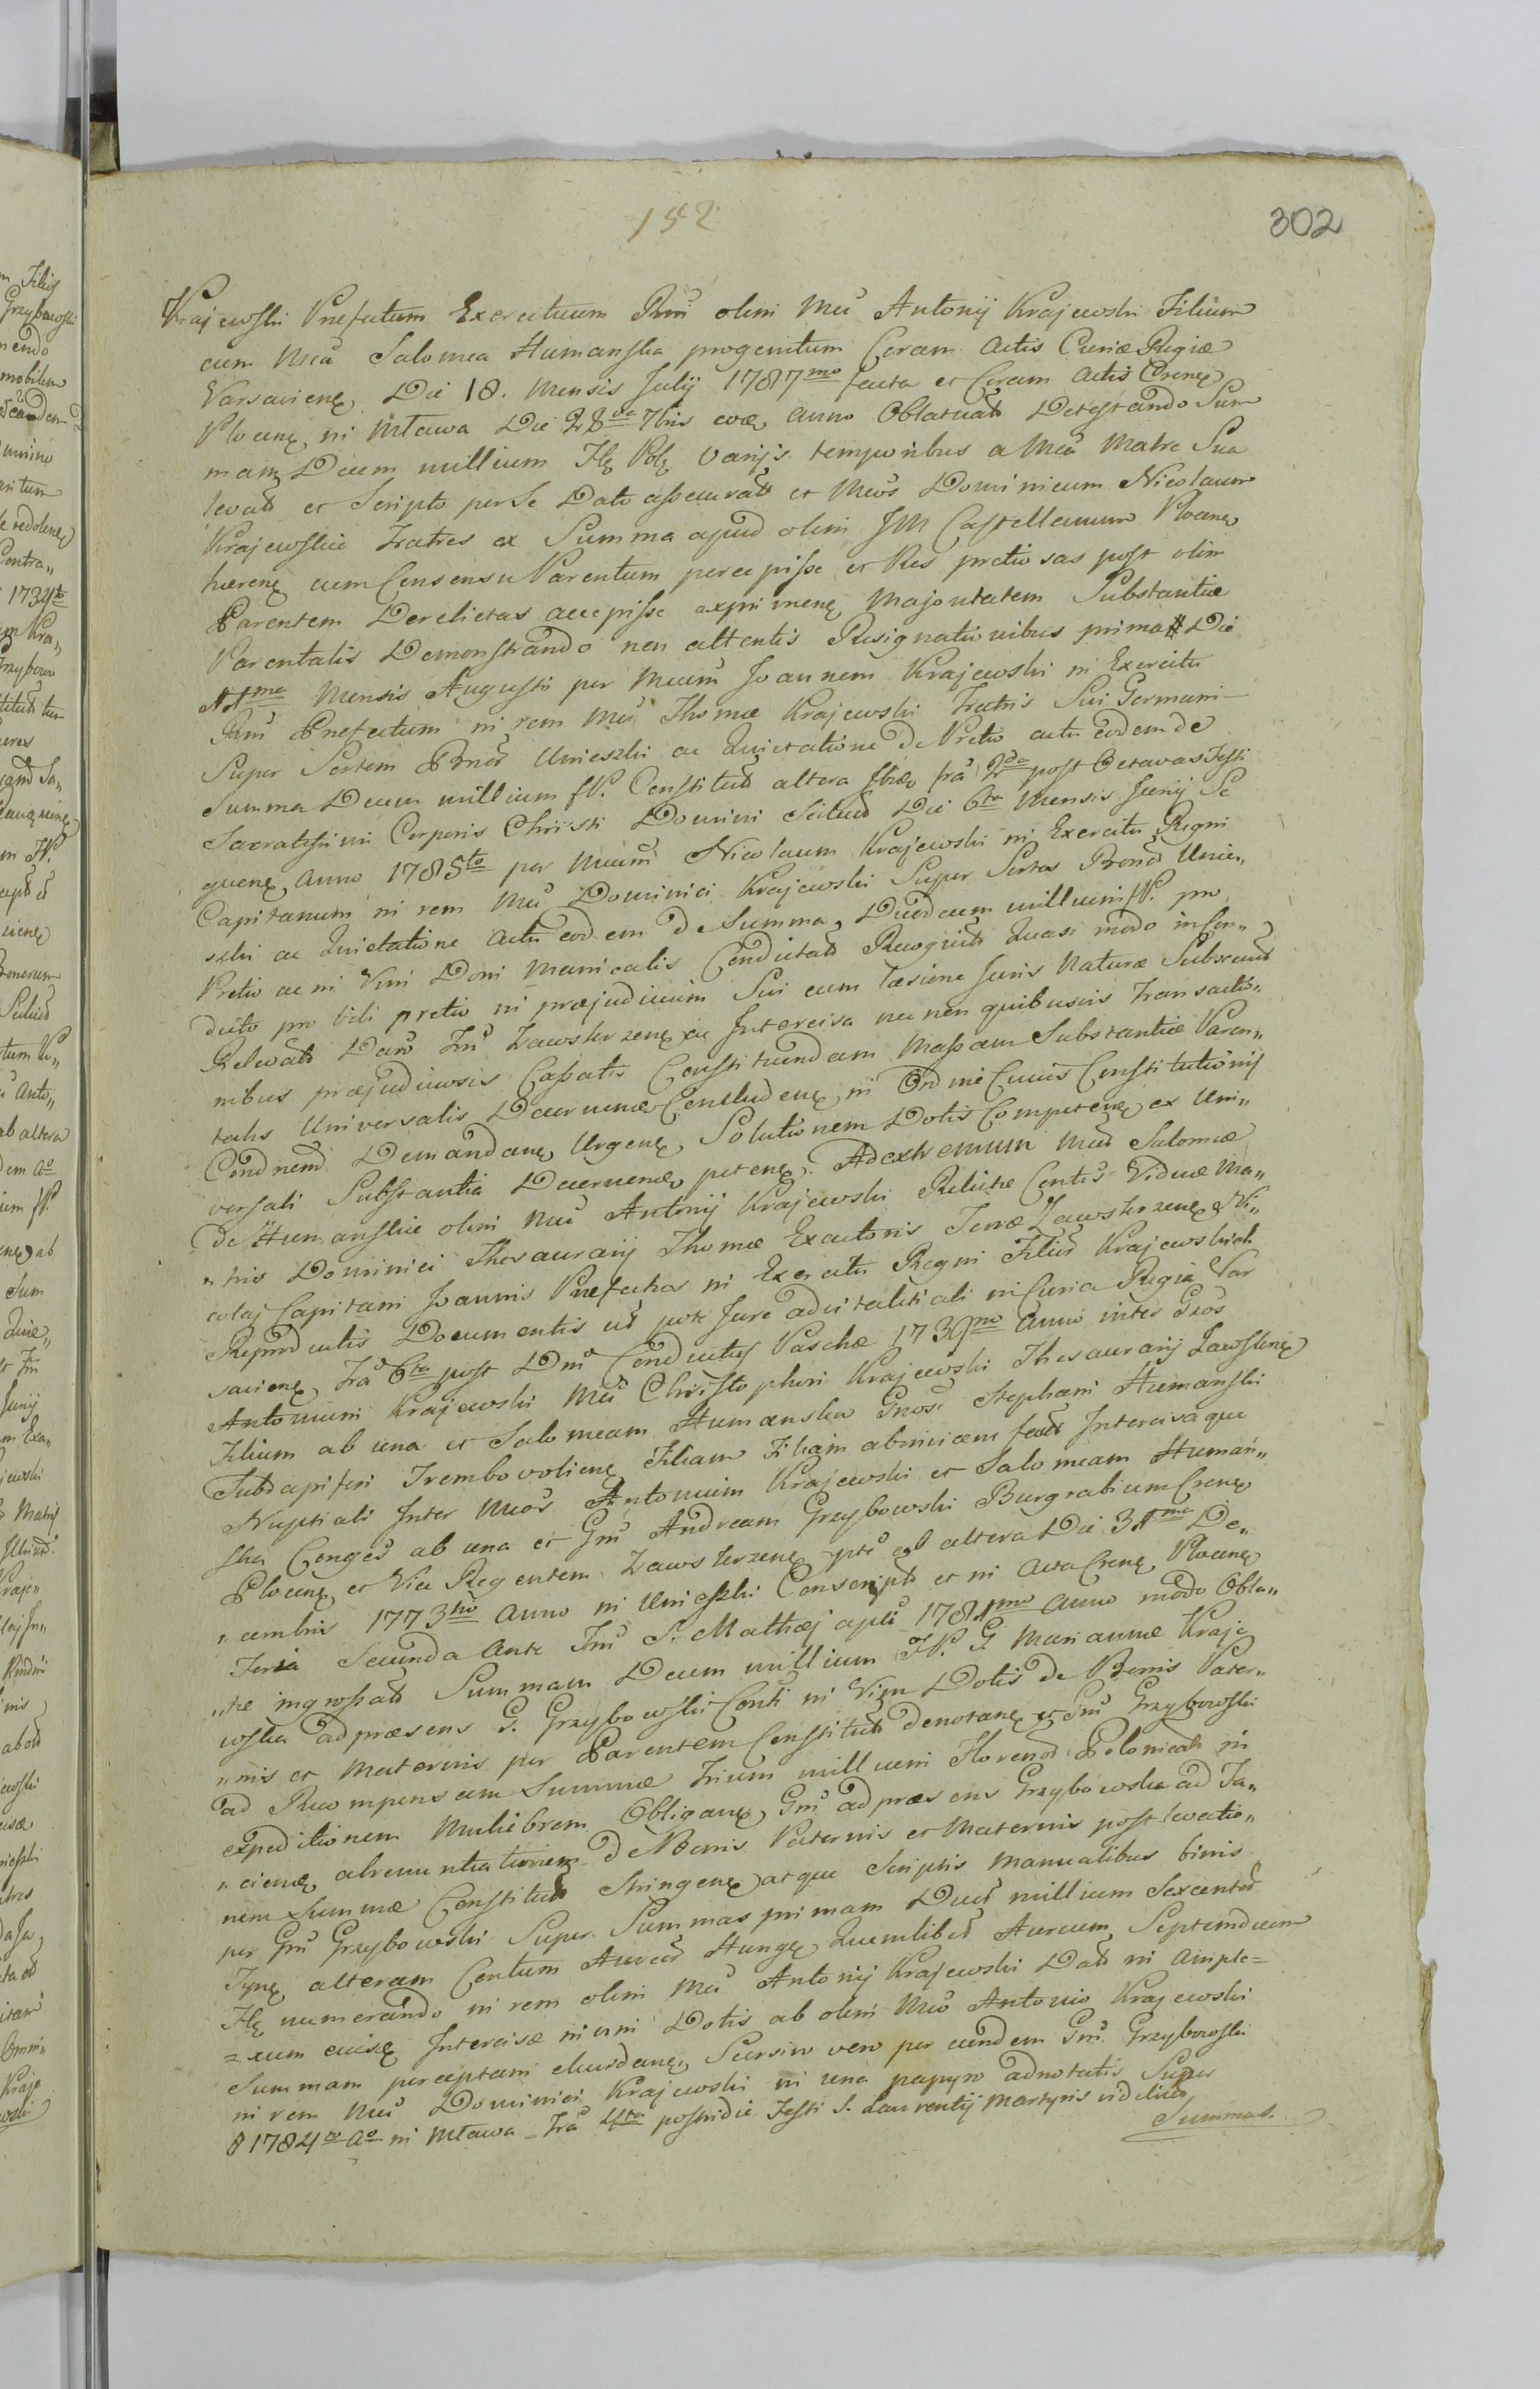 152
302
Krajewski Præfectum Exercituum Rni olim Mci Antonij Krajewski Filium
cum Mca Salomea Humanska progenitum Coram Actis Curiæ Regiæ
Varsavienę Die 18. Mensis Julij 1787mo facta et Coram Actis Crenę
Plocenę in Mława Die 28va 7bris eoę Anno Oblatuaტ Detestando Sum
mam Decem millium Flę Polę varijs temporibus a Mca Matre Sua
levat et Scripto per Se Dato assecurat et Mcos Dominicum Nicolaum
Krajewskie Fratres ex Summa apud olim JM Castellanum Plocenę
hærenę cum Consensu Parentum percepisse et Res pretiosas post olim
Parentem Derelictas accepisse exprimenę Majoritatem Substantiæ
Parentalis Demonstrando non attentis Resignationibus prima Die
11ma Mensis Augusti per Mcum Joannem Krajewski in Exercitu
Rni Præfectum in rem Mci Thomæ Krajewski Fratris Sui Germani
Super Sortem Bnor Unieszki ac Quietatione de Pretio actu eodem de
Summa Decem millium fP. Constitut altera ibidę fra 2da post Octavas Festi
Sacratissimi Corporis Christi Domini Scilicet Die 6ta Mensis Junij Se
quenę Anno 1785to per Mcum Nicolaum Krajewski in Exercitu Regni
Capitanum in rem Mci Dominici Krajewski Super Sortes Bonor Unie„
szki ac Quietatione Actu eodem de Summa Duodecim millium fP. pro
Pretio ac in Vim Doni Manicalis Condictat Recognit Quasi modo in Con„
dicto pro vili pretio in præjudicium Sui cum læsione Juris Naturæ Subsecut
Relevat Daro Tri Zawskrzenę ac Intercisa nec non quibusvis Transactio„
nibus præjudiciosis Cassatis Constituendam Massam Substantiæ Paren„
talis Universalis Decernenę Concludenę in Ordine Cuius Constitutionis
Condnend Demandanę Urgenę Solutionem Dotis Competenę ex Uni„
versali Substantia Decernenę petenę. Ad extremum Mcæ Salomeæ
de Humanskie olim Mci Antonij Krajewski Relictæ Contis Viduæ Ma„
„tris Dominici Thesaurarij Thomæ Exactoris Terræ Zawskrzenę Ni„
colaj Capitani Joannis Præfectus in Exercitu Regni Filior Krajewskich
Reproductis Documentis ut pote Jure advitalitiali in Curia Regia Var
savienę fra 6ta post Dnę Conductus Paschæ 1739no Anno inter Gsos
Antonium Krajewski Mci Christophori Krajewski Thesaurarij Zawskrzenę
Filium ab una et Salomeam Humanska Gnosi Stephani Humanski
Subdapiferi Trembovolienę Filiam Filiam abinvicem fact Intercisaque
Nuptiali Inter Mcos Antonium Krajewski et Salomeam Human„
ska Conges ab una et Gm Andream Grzybowski Burgrabium Crenę
Plocenę et Vice Regentem Zawskrzenę pte ab altera Die 31ma De„
„cembris 1773tio Anno in Unieszki Conscript et in Acta Crenę Plocenę
Feria Secunda Ante Fm S. Mathæj apli 1781mo Anno modo Obla„
„tæ ingrossat Summam Decem millium FP. G. Mariannæ Kraje
wska ad præsens G. Grzybowski Conti in Vim Dotis de Bonis Pater„
„nis et Maternis per Parentem Constitut denotanę et Gm Grzybowski
ad Recompensam Summæ Trium millium Florenor Polonical in
expeditionem Muliebrem Obliganę Gm ad præsens Grzybowska ad Fa„
„cienę abrenuntiationem de Bonis Paternis et Maternis post levatio„
nem Summæ Constitut Stringenę atque Scriptis Manualibus binis
per Gm Grzybowski Super Summas primam Duor millium Sexcentor
Tynę alteram Centum Aureor Hungę Quemlibet Aureum Septemdecem
Flę numerando in rem olim Mci Antonij Krajewski Dat in Ample=
=xum eiusę Intercisæ in vim Dotis ab olim Mco Antonio Krajewski
Summam perceptam elucidanę, Sursin vero per eundem Gm Grzybowski
in rem Mci Dominici Krajewski in una papyro adnotatis Super
1784to Ao in Mława fra 4ta postridie Festi S. Laurentij Martyris videlicet
Summas.